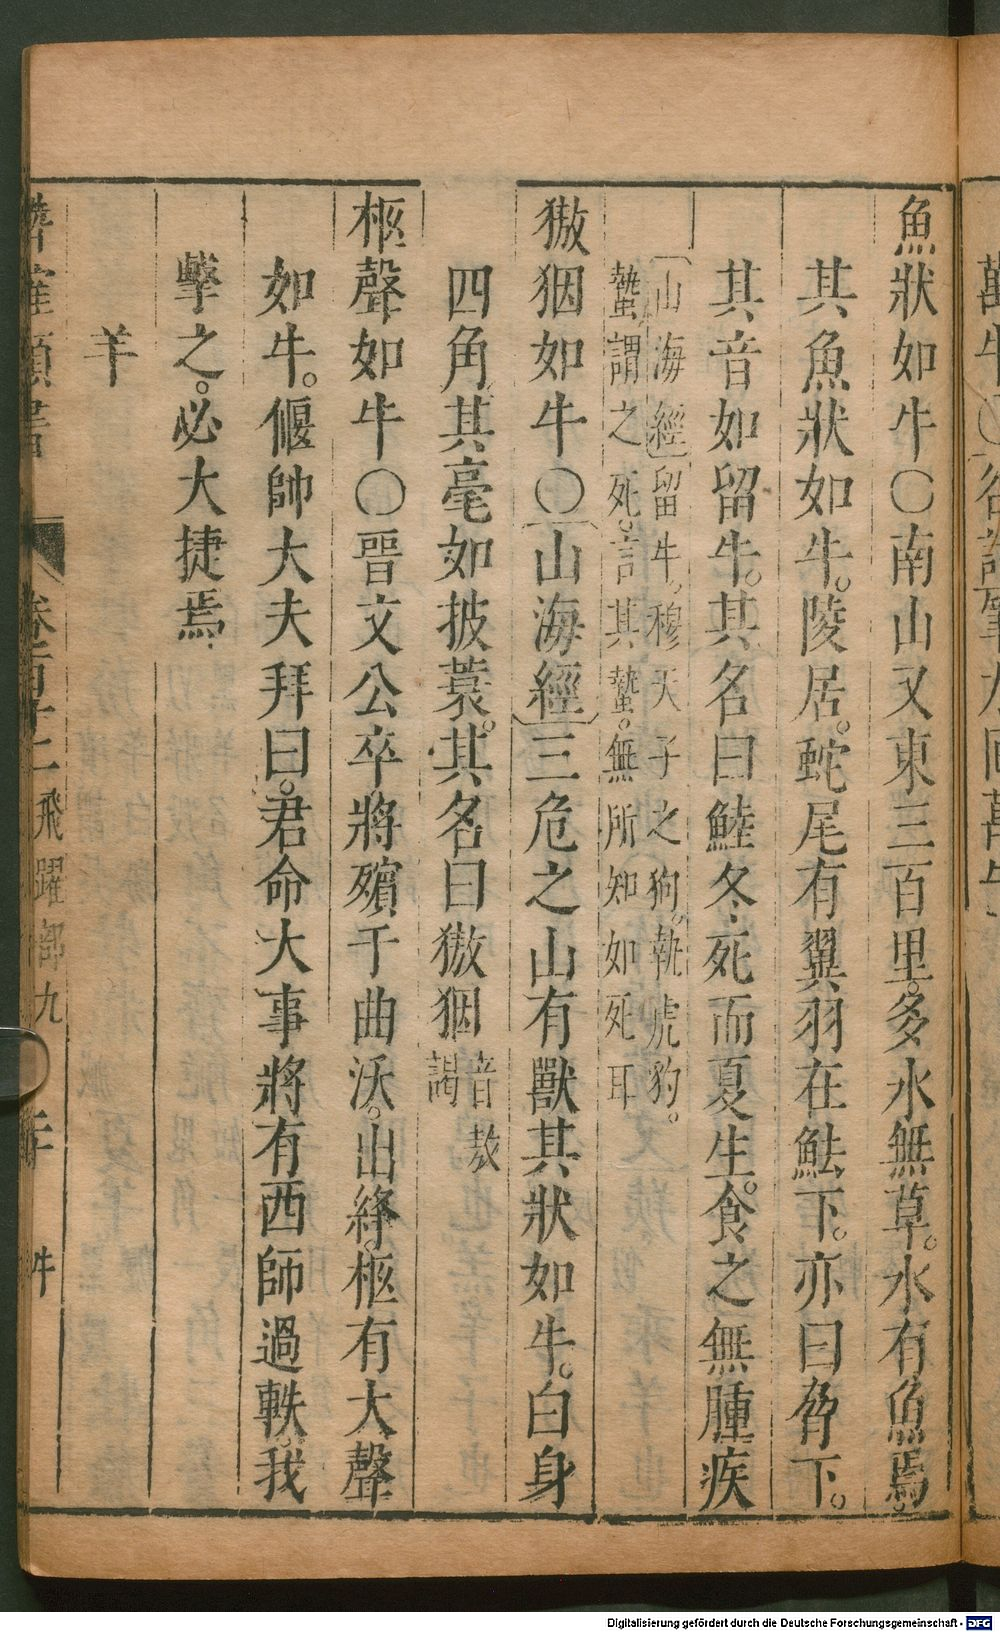 魚狀如牛○南山又東三百里。多水無草。水有魚焉。
其魚狀如牛。陵居。蛇尾有翼羽在魼下。亦曰脅下。
其音如留牛。其名曰鯥冬死而夏生。食之無腫疾
山海經留牛。穆天子之狗。執虎豹。
蟄謂之死。言其蟄。無所知如死耳
獓𤝱如牛○山海經三危之山有獸其狀如牛。白身
四角其毫如披蓑。其名曰獓𤝱音敖
謁
柩聲如牛○晉文公卒將殯于曲沃。出絳。柩有大聲
如牛。偃帥大夫拜曰。君命大事將有西師過軼。我
擊之。必大捷焉
羊
潛確類書 卷百十一飛躍部九 牛
Digitalisierung gefördert durch die Deutsche Forschungsgemeinschaft - DFG